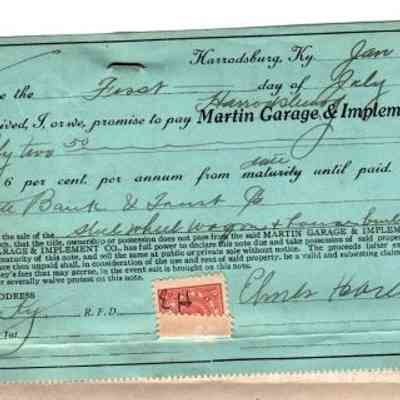 Harrodsburg, Ky. Jan
e the First day of July
ived, I, or we, promise to pay Harrodsburg
Martin Garage & Implem
ty two 50
6 per cent. per annum from date maturity until paid.
te Bank & Trust Co
is the sale of the Steel Wheel Wagon &
tion, that the title, ownership or possession does not pass from the said MARTIN GARAGE & IMPLEM
ARAGE & IMPLEMENT CO., has full power to declare this note due and take possession of said proper
maturity of this note, and sell the same at public or private sale without notice. The proceeds
then unpaid shall, in consideration of the use and rent of said property, be a valid and subsisting claim
ney's fees may accrue, in the event suit is brought on this note.
or severally waive protest on this note.
ADDRESS
Ky. R. F. D.
Int.